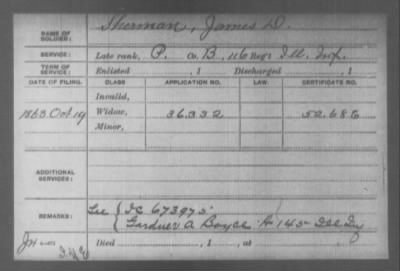 NAME OF SOLDIER: Sherman, James D.
SERVICE: Late rank, P. Co. B, 116 Reg't Ill. Inf.
TERM OF SERVICE: Enlisted , 1 Discharged , 1
DATE OF FILING. CLASS APPLICATION NO. LAW. CERTIFICATE NO.
Invalid,
1863 Oct 19 Widow, 36.332 52.686
Minor,
ADDITIONAL SERVICES:
REMARKS: See { IC 673975
Gardner A Boyce A 145 Ill Inf
Died , 1 , at